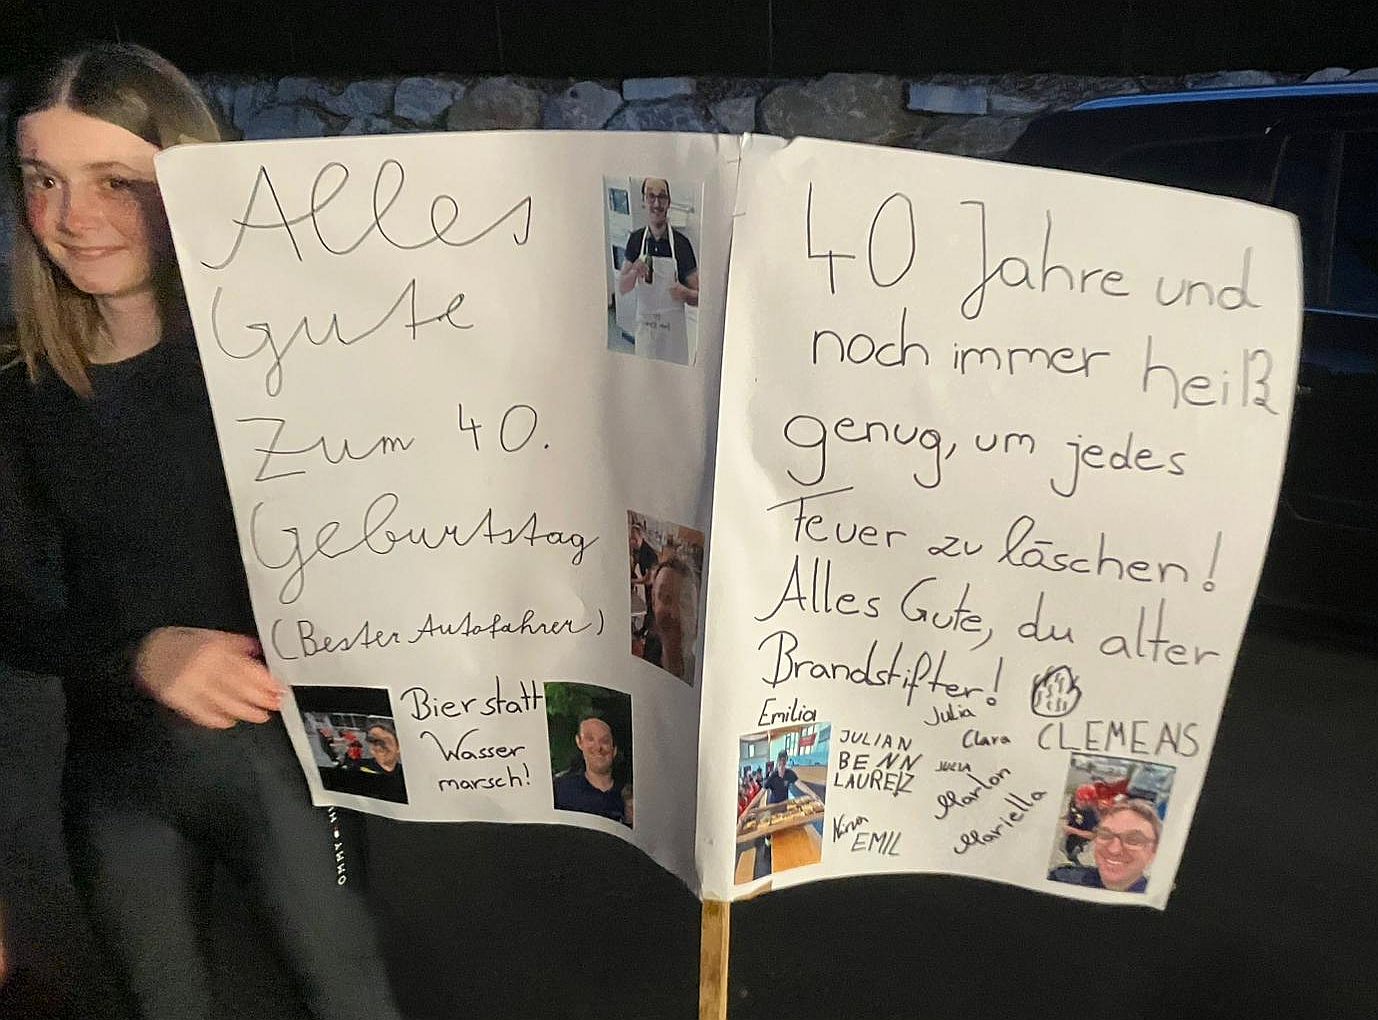 Alles
Gute
Zum 40.
Geburtstag
(Bester Autofahrer)
Bier statt
Wasser
marsch!
40 Jahre und
noch immer heiß
genug, um jedes
Feuer zu löschen!
Alles Gute, du alter
Brandstifter!
Emilia
Julia
JULIAN
Clara
CLEMENS
BENN
JULIA
LAURENZ
Marlon
Mariella
Nina
EMIL